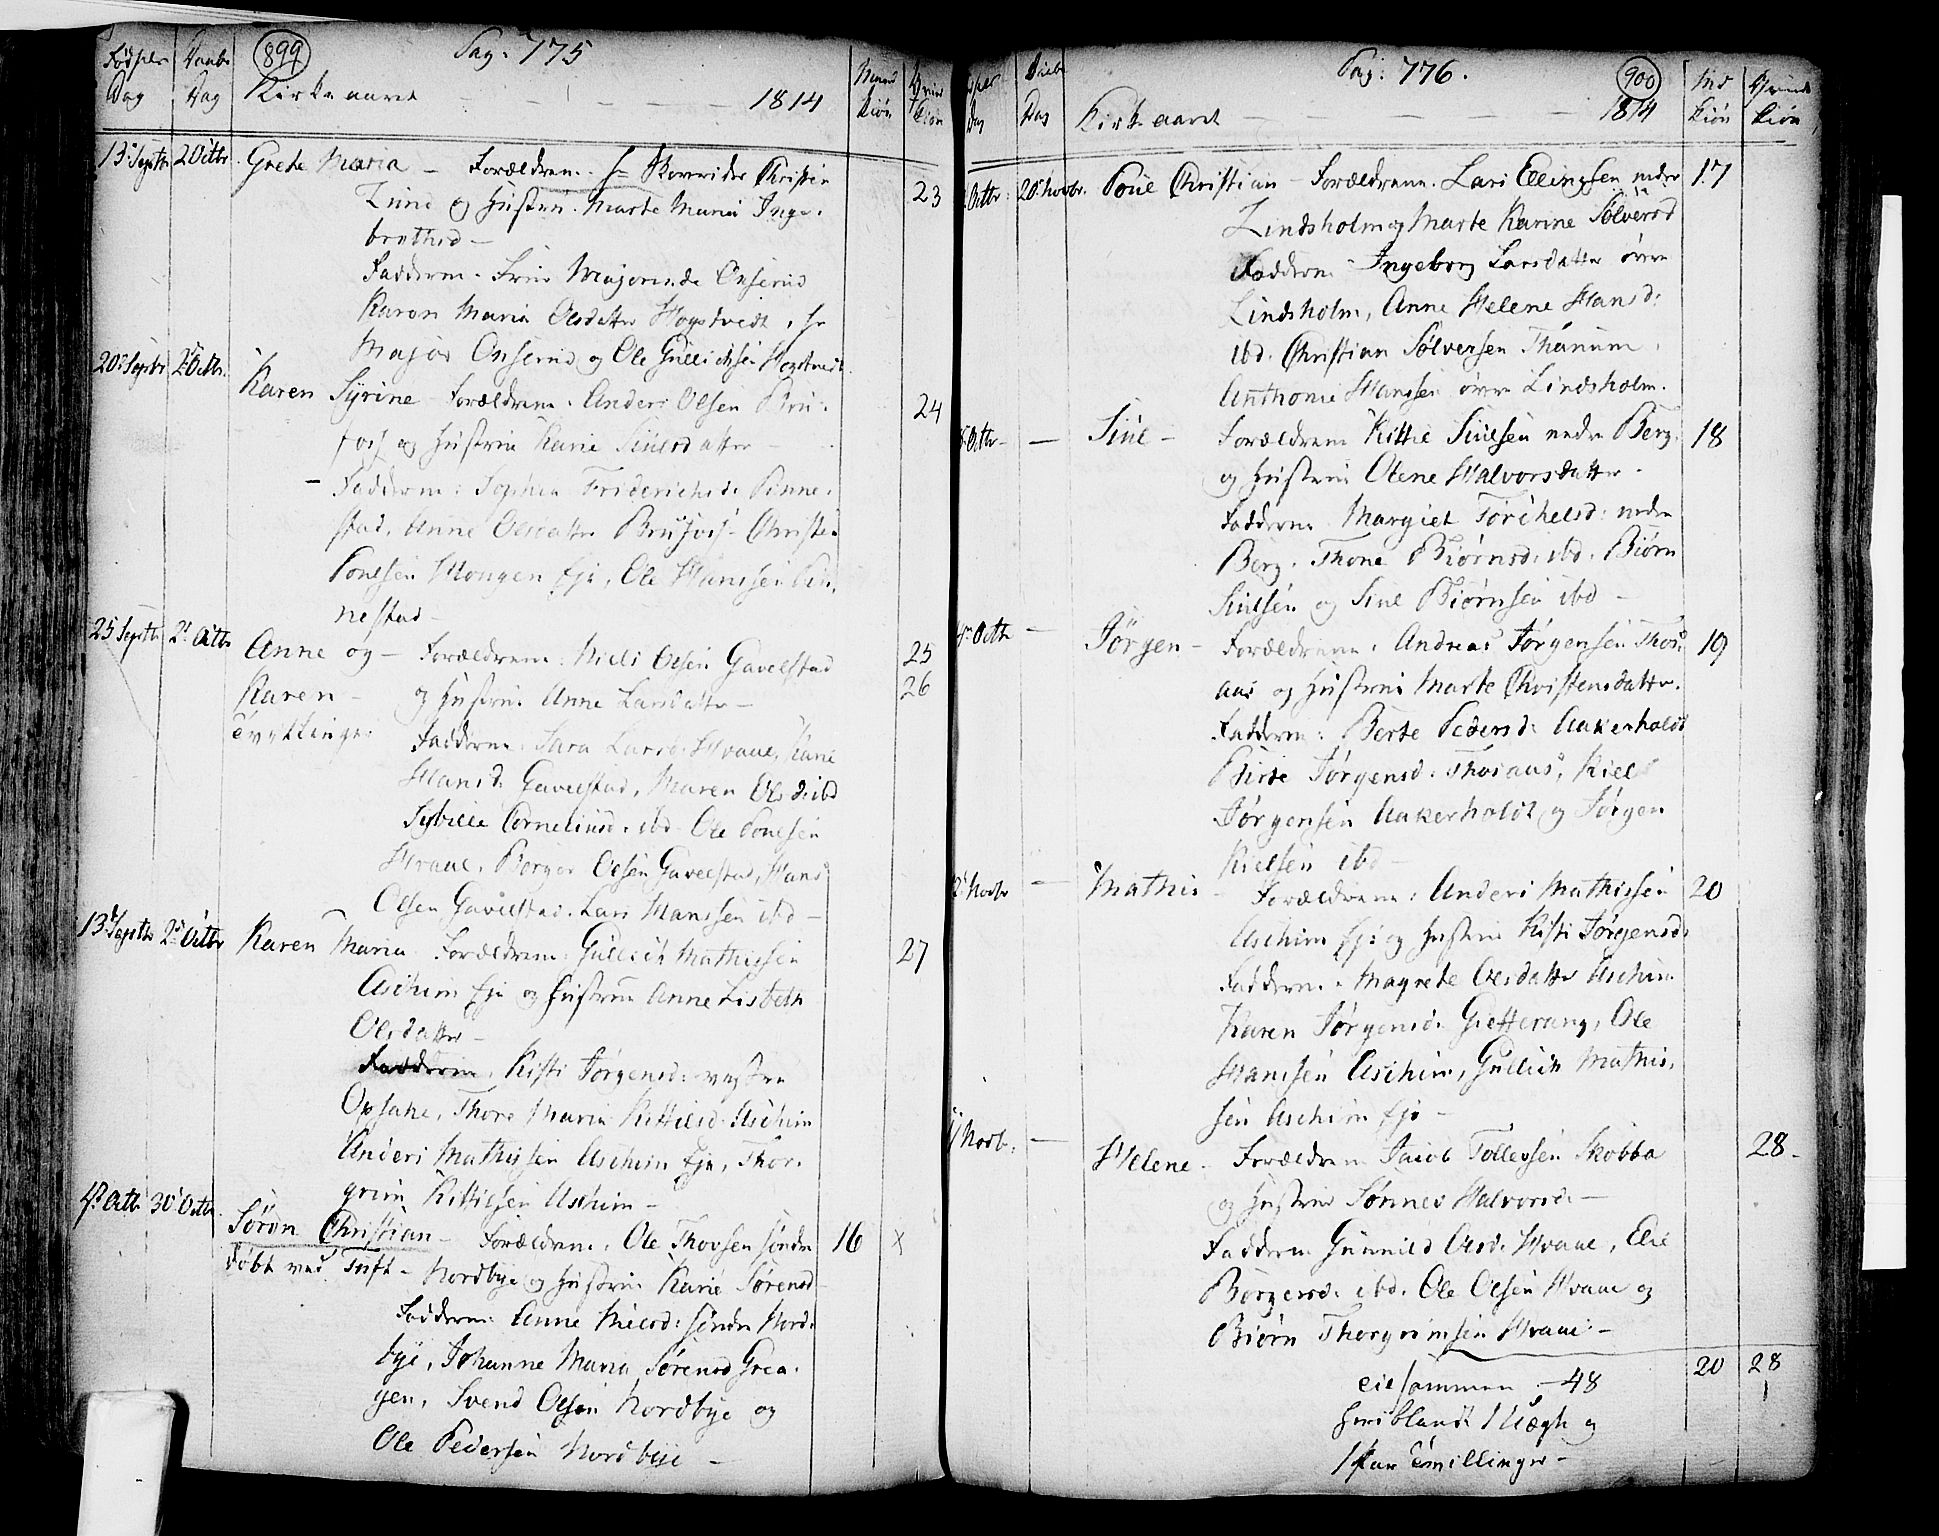 Fødsels Dag
Daabs Dag
899
Pag: 775
Kirke aaret — 1814
Mand Kiøn
Qvind Kiøn
13 Septbr 2 Octbr Grethe Maria — Forældrene. Hr. Christen 23
Lund og Hustrue Marte Maria Inge-
brethsd —
Fadderne. Frue Majorinde Onserud
Karen Maria Olsdatter Hogstvedt, Hr
Major Onserud og Ole Gullichsen Hogstvedt
20 Septbr 2 Octbr. Karen Syrine — Forældrene. Anders Olsen Bru- 24
fos og Hustrue Karie Siulsdatter —
Fadderne: Sophia Friderichsd: Pinne-
stad, Anne Olsdatter Brufos. Christen
Poulsen Hougen Eje, Ole Hanssen Pin-
nestad —
25 Septbr 2 Octbr Anne og — Forældrene: Niels Olsen Gavelstad 25
Karen — og Hustrue Anne Larsdatter — 26
Tvillinger
Fadderne: Sara Larsd: Hvaal, Karie
Hansd: Gavelstad, Maren Olsd: ibd
Sybille Corneliusd. ibd. Ole Poulsen
Hvaal, Borger Olsen Gavelstad, Hans
Olsen Gavelstad. Lars Hanssen ibd —
13 Septbr 2 Octbr Karen Maria. Forældrene: Gullich Mathissen 27
Aschim Eje og Hustrue Anne Lisbeth
Olsdatter —
Fadderne. Kisti Jørgensd: vestre
Opsahl, Thore Maria Kittilsd. Aschim
Anders Mathissen Aschim Eje, Thor-
grim Kittilsen Aschim —
4 Octbr 30 Octbr. Søren Christian — Forældrene. Ole Thovsen søndre 16 x
døbt ved Tuft — Nordbye og Hustrue Karie Sørensd —
Fadderne: Anne Nielsd: søndre Nord-
bye, Johanne Maria Sørensd Grea-
gen, Svend Olsen Nordbye og
Ole Pedersen Nordbye —
Dag
Daabs Dag
Pag: 776.
900
Kirke aaret — 1814
Md Kiøn
Qvind Kiøn
Octbr: 20 Novbr. Poul Christian — Forældrene. Lars Ellingsen nedre 17
Lindsholm og Marte Karine Sølversd
Fadderne Ingeborg Larsdatter øvre
Lindsholm, Anne Helene Hansd:
ibd. Christian Sølversen Thanum,
Anthonie Hanssen øvre Lindsholm.
Octbr — Siul — Forældrene Kittil Siulsen nedre Berg. 18
og Hustrue Olene Halvorsdatter.
Fadderne Margiet Torchelsd: nedre
Berg. Thone Biørnsd. ibd. Biørn
Siulsen og Siul Biørnsen ibd —
Octbr — Jørgen — Forældrene. Andreas Jørgensen Thos- 19
aas og Hustrue Marte Christensdatter.
Fadderne: Berte Pedersd: Aakerholdt
Birte Jørgensd. Thosaas, Niels
Jørgensen Aakerholdt og Jørgen
Nielsen ibd —
Novbr — Mathis — Forældrene: Anders Mathissen 20
Aschim Eje og Hustrue Kisti Jørgensd:
Fadderne. Magrete Olsdatter Aschim
Karen Jørgensd. Gietterang, Ole
Hanssen Aschim, Gullich Mathis-
sen Aschim Eje —
Novb. — Helene — Forældrene Jacob Tollevsen Skobba 28 —
og Hustrue Sønnev Halvorsd. —
Fadderne Gunnild Olsd. Hvaal, Elie
Borgersd. ibd. Ole Olsen Hvaal og
Biørn Thorgrimsen Hvaal —
20 28
Tilsammen — 48 1
hvoriblandt 1 Uægte og
1 Par Tvillinger —